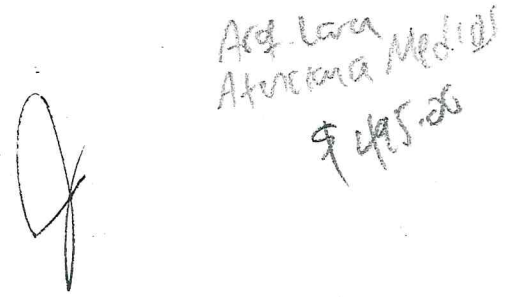 Arq. Lara
Atenciona Medios
$ 495.00